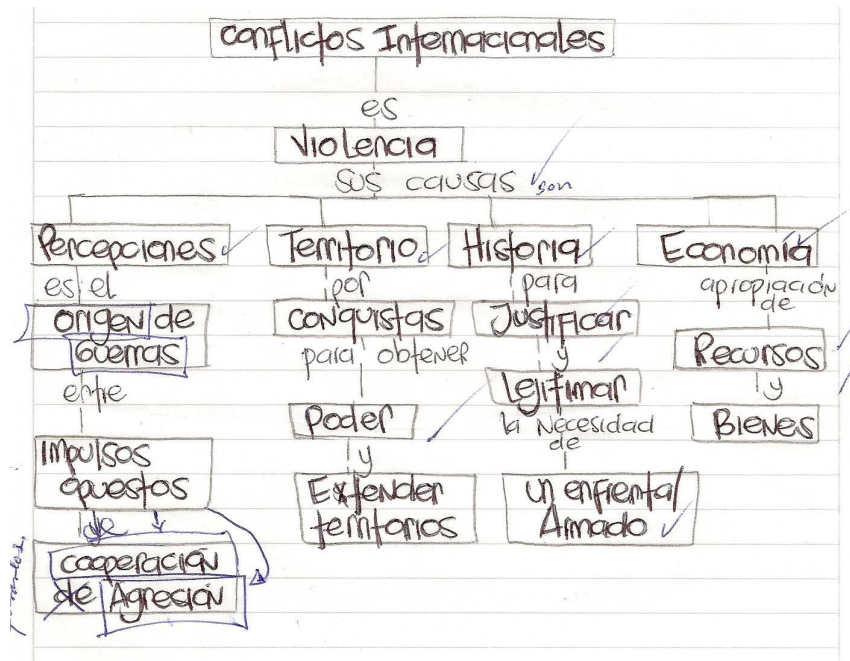 Conflictos Internacionales
es
Violencia
sus causas son
Percepciones
es el
origen de
Guerras
entre
Impulsos
opuestos
de
cooperación
de Agresión
Territorio
por
conquistas
para obtener
Poder
y
Extender
territorios
Historia
para
Justificar
y
Legitimar
la necesidad
de
un enfrenta/
Armado
Economía
apropiación
de
Recursos
y
Bienes